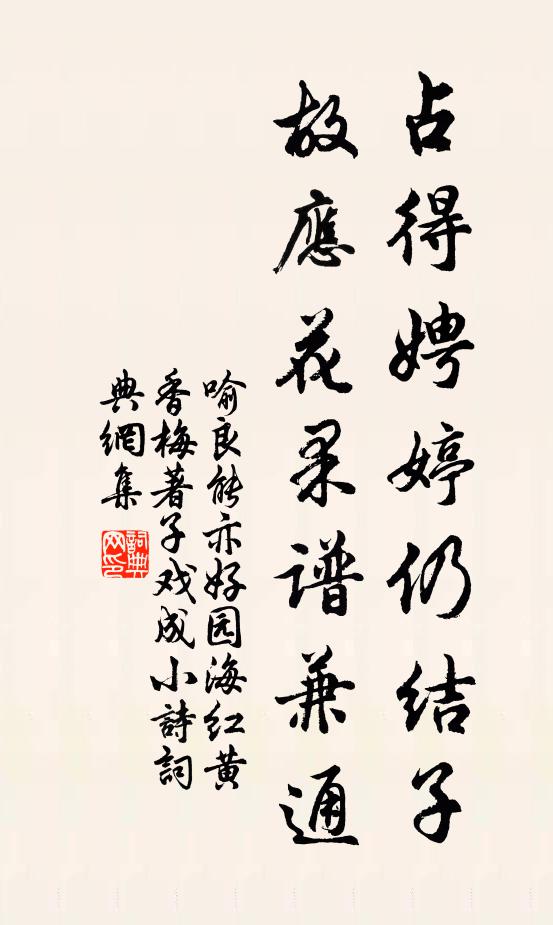 占得娉婷仍结子
故應花果谱兼通
喻良能亦好园海红黄
香梅著子戏成小詩詞
典網集
詞典
网印